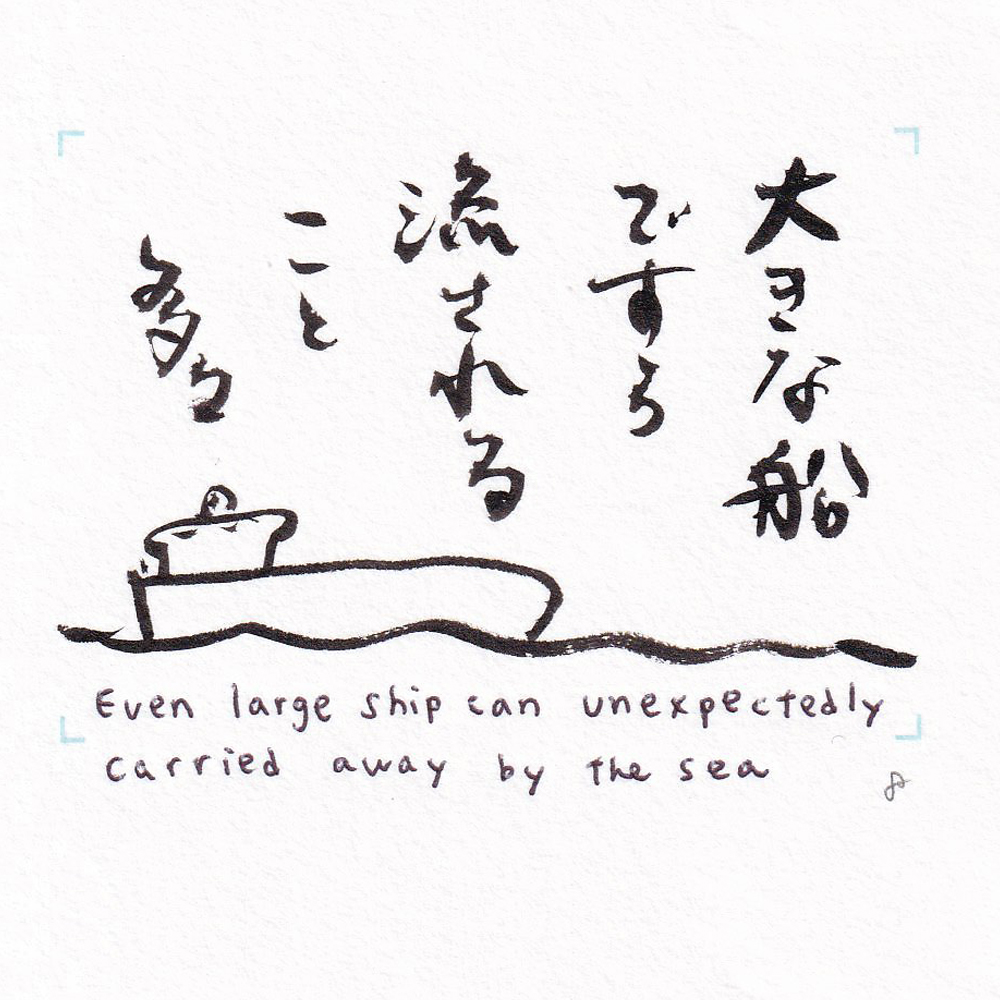 大きな船
ですら
流される
こと
多々
Even large ship can unexpectedly
carried away by the sea